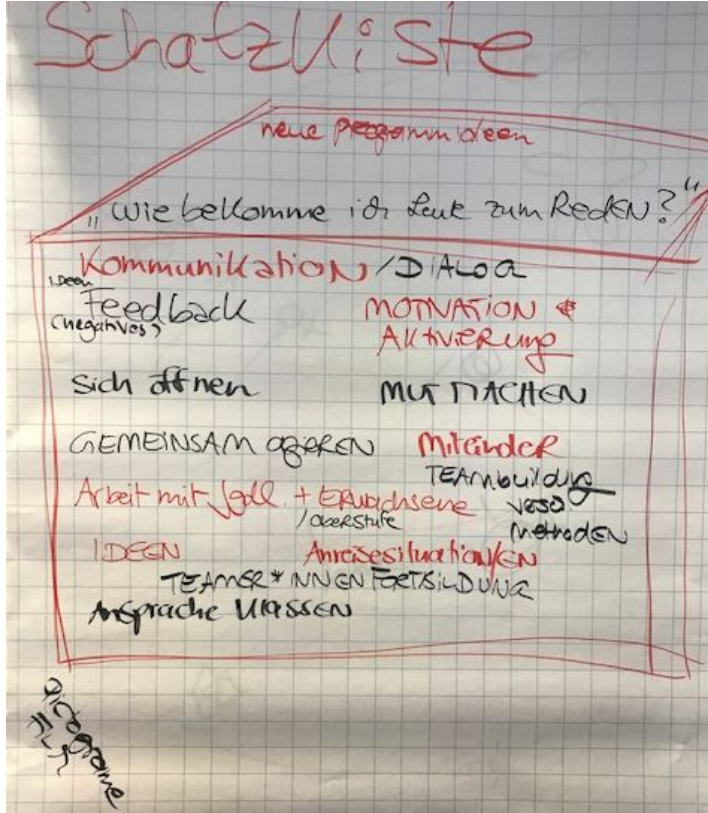 Schatzkiste
neue Programmideen
„Wie bekomme ich Leute zum Reden?"
Kommunikation/DIALOG
Ideen
Feedback
(negatives)
MOTIVATION &
AKtiVIERung
Sich öffnen
MUT MACHEN
GEMEINSAM agieren
MiteinandeR
TEAMbuildung
Arbeit mit Jgdl. + ERwachsene
/Oberstufe
MethodEN
IDEEN
Anreisesituation/EN
TEAMER*INNENFORTBILDUNG
Ansprache Klassen
Pictogramme